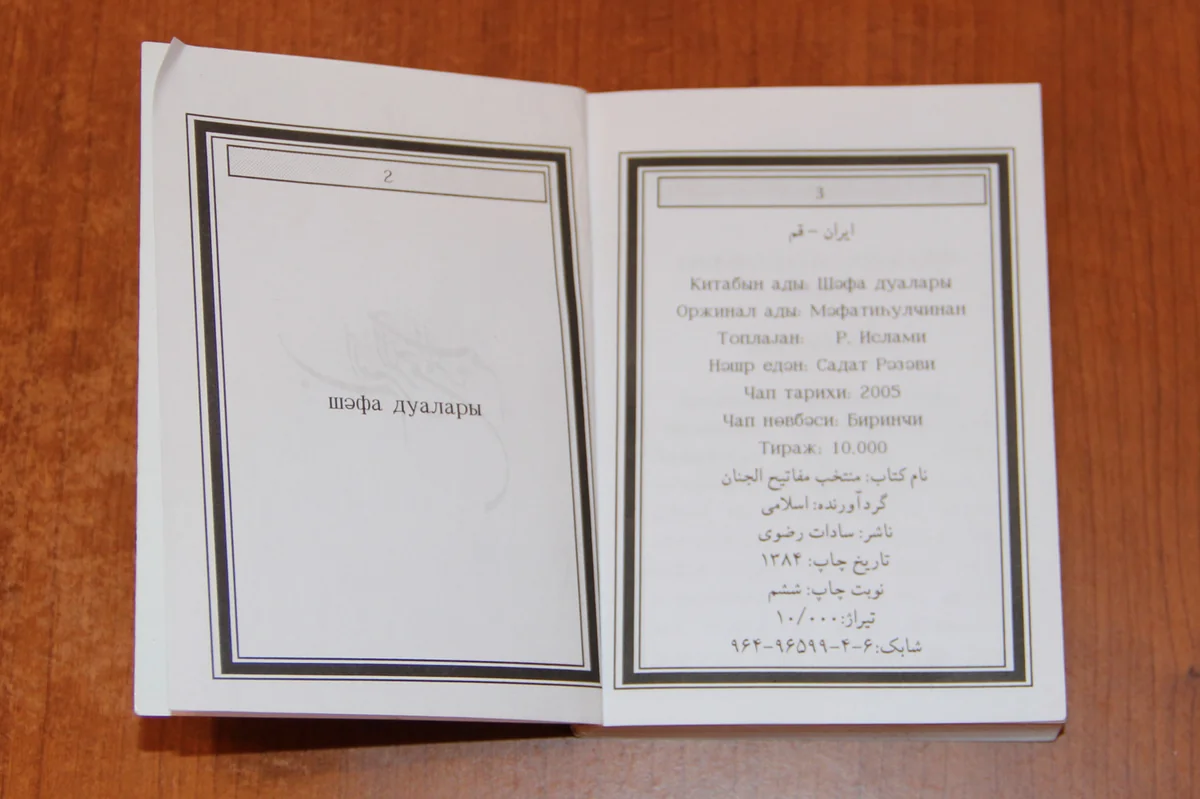 2
шәфа дуалары
3
ایران – قم
Китабын ады: Шәфа дуалары
Оржинал ады: Мәфатиһулчинан
Топлајан: Р. Ислами
Нәшр едән: Садат Рәзәви
Чап тарихи: 2005
Чап нөвбәси: Биринчи
Тираж: 10.000
نام کتاب: منتخب مفاتیح الجنان
گردآورنده: اسلامی
ناشر: سادات رضوی
تاریخ چاپ: ۱۳۸۴
نوبت چاپ: ششم
تیراژ: ۱۰/۰۰۰
شابک: ۶-۴-۹۶۵۹۹-۹۶۴